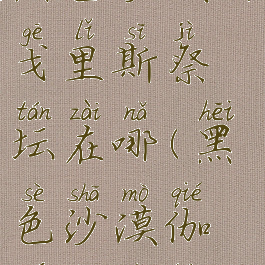 gē lǐ sī jì
戈里斯祭
tán zài nǎ hēi
坛在哪(黑
sè shā mò qié
色沙漠伽